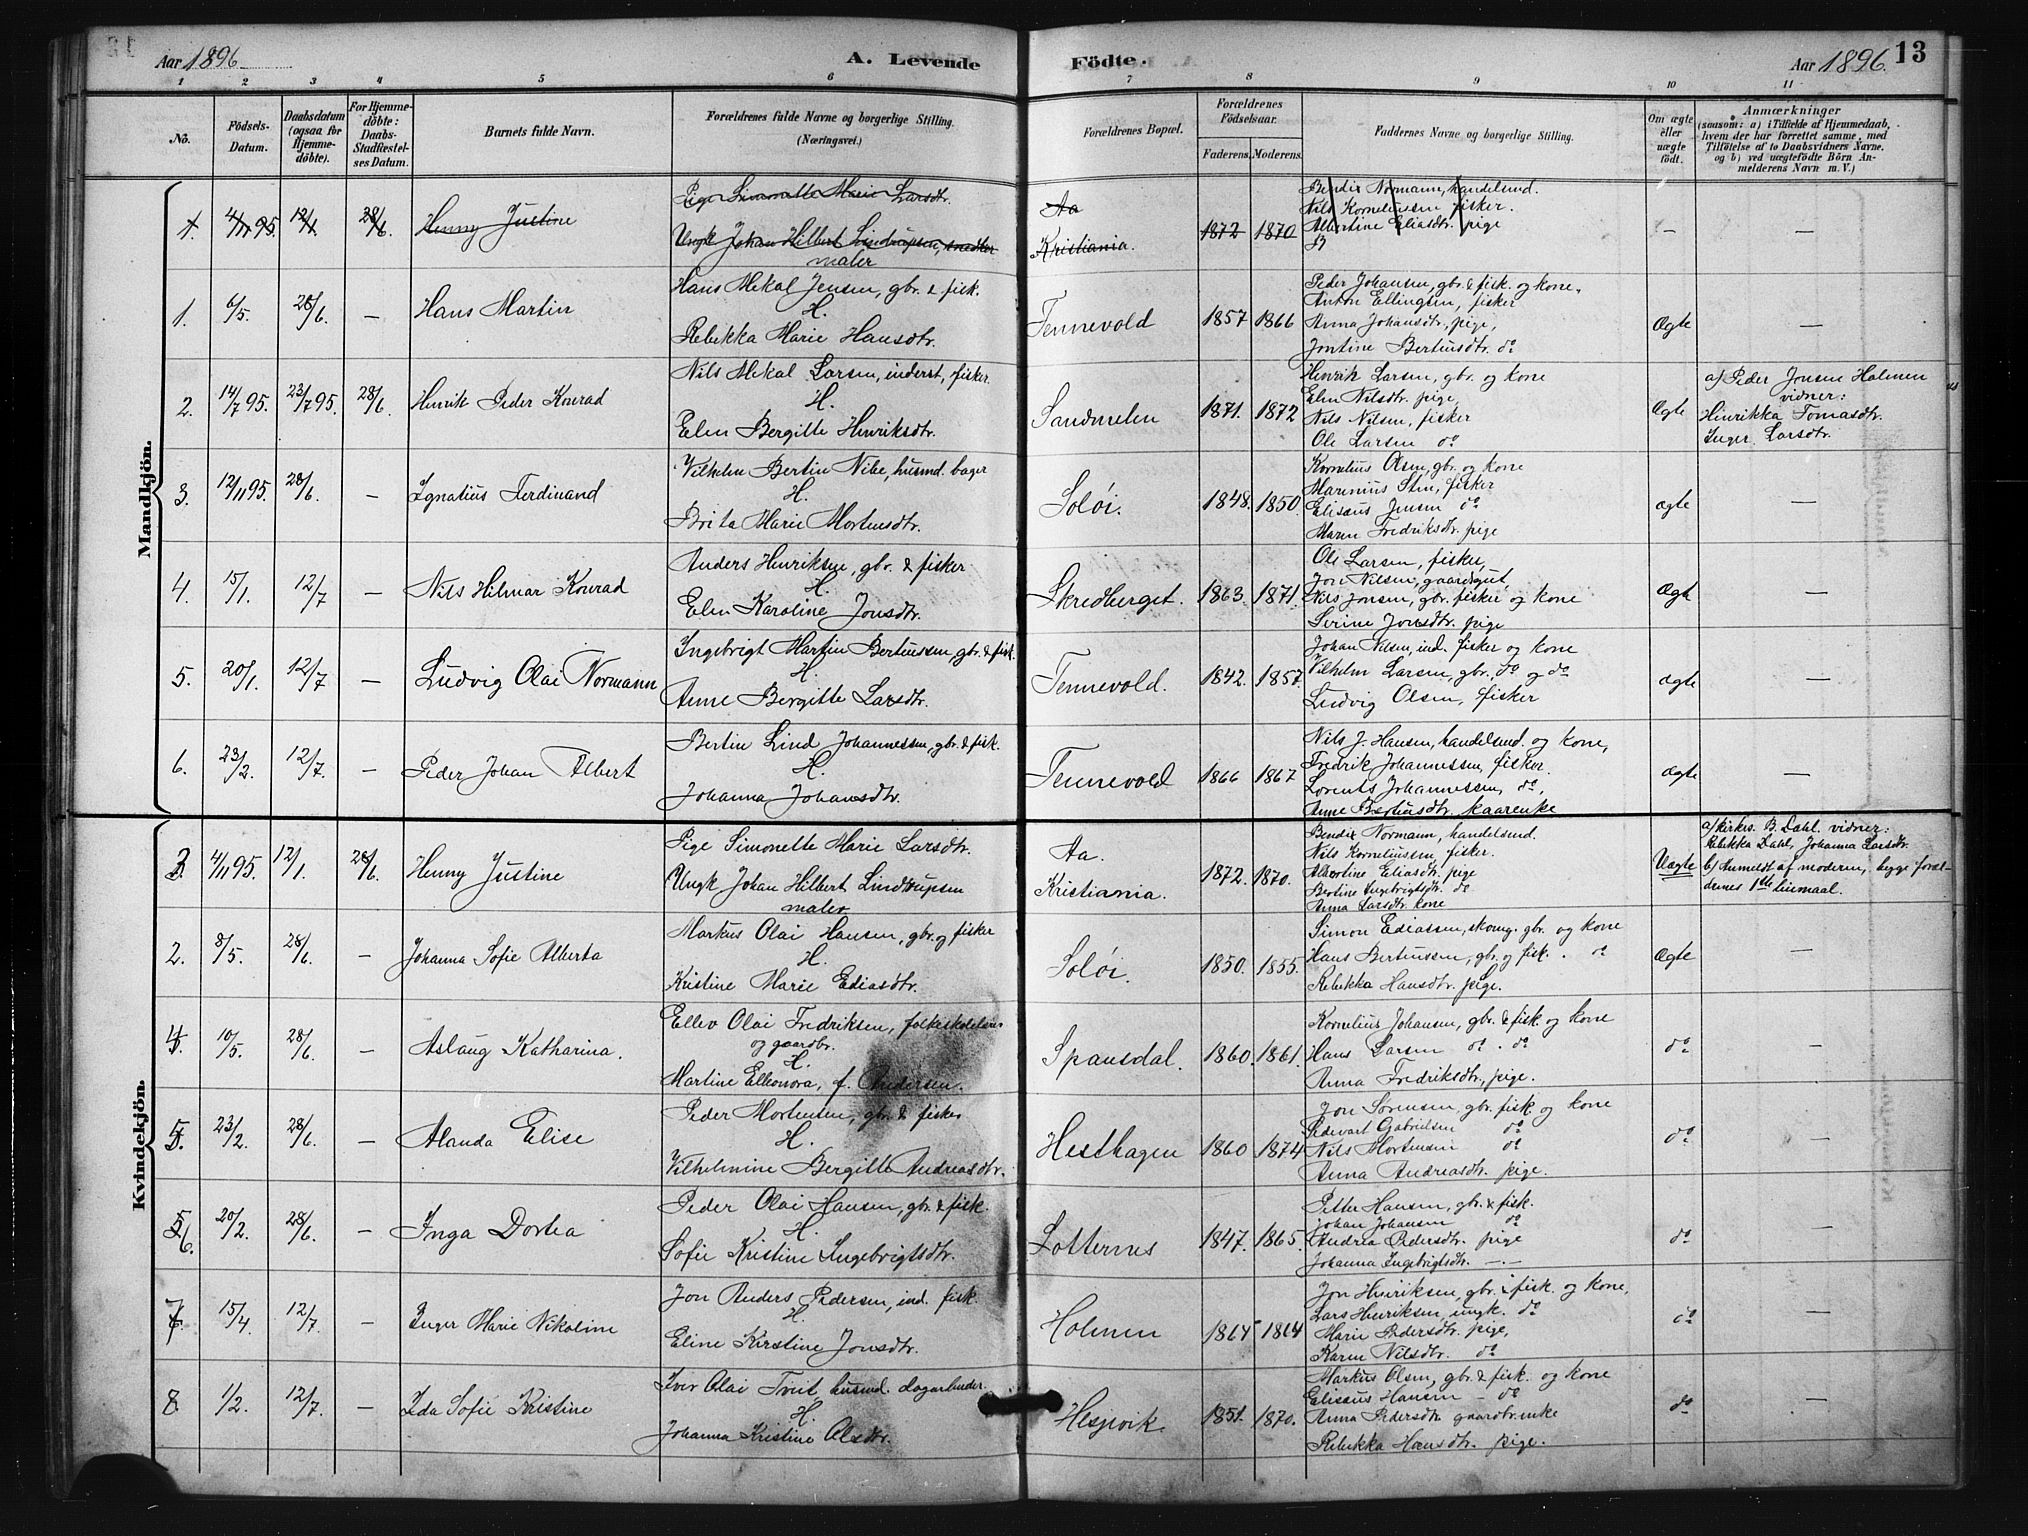 Aar 1896
A. Levende
Födte.
Aar 1896.
13
1 2 3 4 5 6 7 8 9 10 11
No.
Födsels-Datum.
Daabsdatum (ogsaa for Hjemme-döbte).
For Hjemme-döbte: Daabs-Stadfæstel-ses Datum.
Barnets fulde Navn.
Forældrenes fulde Navne og borgerlige Stilling. (Næringsvei.)
Forældrenes Bopæl.
Forældrenes Födselsaar.
Faderens. Moderens.
Faddernes Navne og borgerlige Stilling.
Om ægte eller uægte födt.
Anmærkninger
(saasom: a) i Tilfælde af Hjemmedaab, hvem der har forrettet samme, med Tilföielse af to Daabsvidners Navne, og b) ved uægtefödte Börn An-melderens Navn m. V.)
Mandkjön.
1. 4/11 95. 12/1. 28/6. Henny Justine
Pige Simonette Marie Larsdtr.
Ungk Johan Hilbert Lindrupsen, snedker
maler
Aa
Kristiania.
1872 1870
Bendix Normann, handelsmd.
Nils Korneliussen fisker.
Albertine Eliasdtr. pige
B
— —
1. 6/5. 28/6. — Hans Martin
Hans Mekal Jensen, gbr. & fisk.
H.
Rebekka Marie Hansdtr.
Tennevold 1857 1866
Peder Johansen, gbr. & fisk. og kone.
Anton Ellingsen, fisker
Anna Johansdtr., pige,
Jontine Bertiusdtr. do
Ægte —
2. 14/7 95. 23/7 95. 28/6. Henrik Peder Konrad
Nils Mekal Larsen, inderst, fisker.
H.
Elen Bergitte Henriksdtr.
Sandmelen 1871. 1872
Henrik Larsen, gbr. og kone
Elen Nilsdtr. pige,
Nils Nilsen, fisker
Ole Larsen do
Ægte
a) Peder Jonsen Holmen
vidner:
Henrikka Tomasdtr.
Inger Larsdtr.
3. 12/11 95. 28/6. — Ignatius Ferdinand
Vilhelm Bertin Nibe, husmd. bager
H.
Brita Marie Mortensdtr.
Soløi. 1848. 1850.
Kornelius Olsen, gbr. og kone
Marenius Stin, fisker
Elisæus Jensen do
Maren Fredriksdtr. pige
ægte —
4. 15/1. 12/7 — Nils Hilmar Konrad
Anders Henriksen, gbr. & fisker
H.
Elen Karoline Jonsdtr.
Skredberget. 1863. 1871.
Ole Larsen, fisker,
Jon Nilsen, gaardsgut,
Nils Jonsen, gbr. fisker og kone
Serine Jonsdtr. pige
Ægte —
5. 20/1. 12/7 — Ludvig Olai Normann
Ingebrigt Martin Bertiussen, gbr. & fisk.
H.
Anne Bergitte Larsdtr.
Tennevold. 1842. 1857.
Johan Nilsen, ind. fisker og kone
Vilhelm Larsen, gbr. do og do
Ludvig Olsen, fisker
ægte —
6. 23/2. 12/7. — Peder Johan Albert
Bertin Lind Johannessen, gbr. & fisk.
H.
Johanna Johansdtr.
Tennevold 1866 1867
Nils J. Hansen, handelsmd. og kone,
Fredrik Johannessen, fisker.
Lorents Johannessen, do.
Anne Bertiusdtr. kaarenke
ægte —
Kvindekjön.
4/11 95. 12/1. 28/6. Henny Justine
Pige Simonette Marie Larsdtr.
Ungk Johan Hilbert Lindrupsen
maler
Aa.
Kristiania.
1872. 1870.
Bendix Normann, handelsmd.
Nils Korneliussen, fisker.
Albertine Eliasdtr. pige
Bertine Ingebrigtsdtr. do
Anna Larsdtr. kone
Uægte
a) kirkes. B. Dahl. vidner:
Rebekka Dahl, Johanna Larsdtr.
b) Anmeldt af moderen, begge foræl-
drenes 1ste leiermaal.
2. 8/5. 28/6. — Johanna Sofie Alberta
Markus Olai Hansen, gbr. og fisker
H.
Kristine Marie Ediasdtr.
Soløi. 1850. 1855.
Simon Ediassen, skomg. gbr. og kone
Hans Bertiussen, gbr. og fisk. . do
Rebekka Hansdtr. pige.
Ægte —
4. 10/5. 28/6. — Aslaug Katharina.
Ellev Olai Fredriksen, folkeskolelærer
og gaardbr.
H.
Martine Elleonora, f. Andersen.
Spansdal. 1860. 1861.
Kornelius Johansen, gbr. & fisk. og kone
Hans Larsen do . do
Anna Fredriksdtr., pige.
do —
5. 23/2. 28/6. — Alanda Elise
Peder Mortensen, gbr. & fisker
H.
Vilhelmine Bergitte Andreasdtr.
Hesthagen 1860 1874
Jon Sørensen, gbr. fisk og kone
Pedevart Gabrielsen do
Nils Mortensen do
Anna Andreasdtr. pige.
do. —
6. 20/2. 28/6. — Inga Dortea
Peder Olai Hansen, gbr. & fisk.
H.
Sofie Kristine Ingebrigtsdtr.
Lotternes 1847. 1865.
Petter Hansen, gbr. & fisk.
Johan Johansen do
Andrea Pedersdtr. pige
Johanna Ingebrigtsdtr. —.—
do —
7. 15/4. 12/7. — Inger Marie Nikoline
Jon Anders Pedersen, ind. fisk.
H.
Eline Kirstine Jonsdtr.
Holmen 1864 1864
Jon Henriksen, gbr. & fisk. og kone,
Lars Henriksen, ungk. do
Marie Pedersdtr. pige,
Karen Nilsdtr. do
do —
8. 1/2. 12/7. — Ida Sofie Kristine
Iver Olai Tveit, husmd. dagarbeider.
H.
Johanna Kristine Olsdtr.
Hesjevik 1851. 1870.
Markus Olsen, gbr. & fisk. og kone
Elisæus Hansen — do
Anna Pedersdtr. gaardbr.enke
Rebekka Hansdtr. pige.
do —